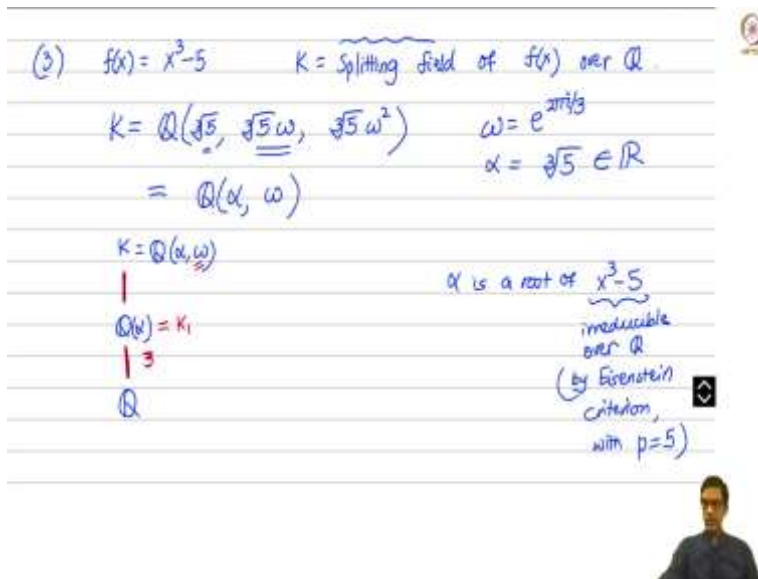 (3) f(x) = x³-5 K = Splitting field of f(x) over ℚ.
K = ℚ(∛5, ∛5ω, ∛5ω²) ω = e^{2πi/3}
= ℚ(α, ω) α = ∛5 ∈ ℝ
K = ℚ(α, ω)
α is a root of x³-5
ℚ(α) = K₁
irreducible
over ℚ
3
(by Eisenstein
ℚ
criterion,
with p=5)